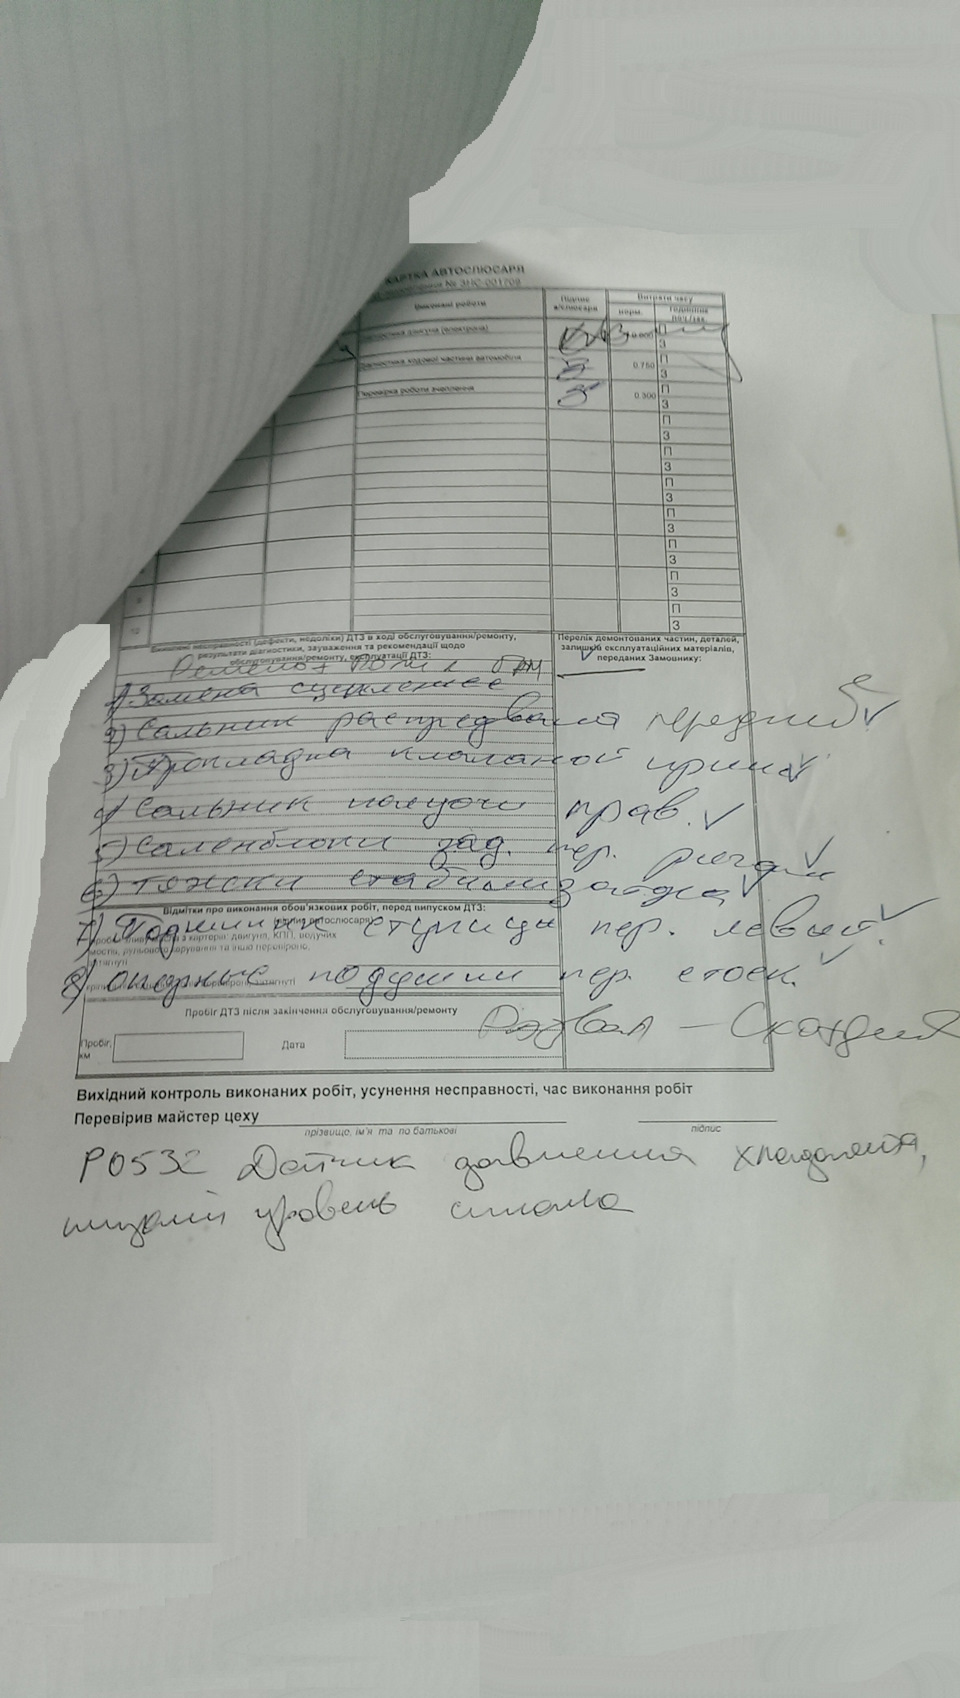 КАРТКА АВТОСЛЮСАРЯ
№ ЗНС-001709
Виконані роботи
Підпис
а/слюсаря
Витрати часу
норм.
годинник
поч./зак.
діагностика двигуна (електрона)
П
З
Діагностика ходової частини автомобіля
0.750
П
З
Перевірка роботи зчеплення
0.300
П
З
П
З
П
З
П
З
П
З
П
З
9
П
З
10
П
З
Виявлені несправності (дефекти, недоліки) ДТЗ в ході обслуговування/ремонту,
результати діагностики, зауваження та рекомендації щодо
обслуговування/ремонту, експлуатації ДТЗ:
Перелік демонтованих частин, деталей,
залишків експлуатаційних матеріалів,
переданих Замовнику:
ГРМ
1) Замена сцепление
2) Сальник распредвала передний
3) Прокладка клапаной крышки
4) Сальник полуоси прав.
5) Саленблоки зад. пер. рычагов
6) тяжки стабилизатора
Відмітки про виконання обов'язкових робіт, перед випуском ДТЗ:
7) Подшипник ступицы пер. левый.
8) опорные подушки пер. стоек.
Пробіг ДТЗ після закінчення обслуговування/ремонту
Развал - Схождения
Пробіг,
км
Дата
Вихідний контроль виконаних робіт, усунення несправності, час виконання робіт
Перевірив майстер цеху
прізвище, ім'я та по батькові
підпис
P0532 Датчик давления хладагента,
низкий уровень сигнала